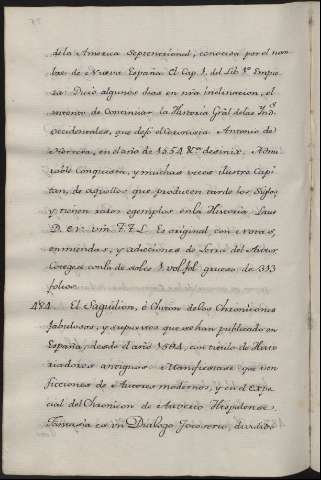 de la America Septentrional, conocida por el nom
bre de Nueva España. El Cap. 1. del Lib. 1.º Empie
za: Duró algunos dias en nra inclinacion, el
intento de Continuar la Historia Grāl de las Ind.s
occidentales, que dejó el Coronista Antonio de
Herrera, en el año de 1554 &.ª desinit. Admi
rable Conquista, y muchas veces ilustre Capi
tan, de aquellos que producen tarde los Siglos,
y tienen raros egemplos en la Historia. Laus
D. et V. M. F. F. L. Es original con
enmiendas, y adicciones de Letra del Autor
Coregs. conla de solis 1. vol. fol. grueso de 313
folios.
484 El Sagidion, ó de los Chronicones
fabulosos, y supuestos que se han publicado en
España, desde el año 1594, con titulo de Histo
riadores antiguos: Manifiestase que son
ficciones de Autores modernos, y en el espe
cial del Chronicon de Auberto Hispalense.
Fantasía en un Dialogo Jocoserio, dividido